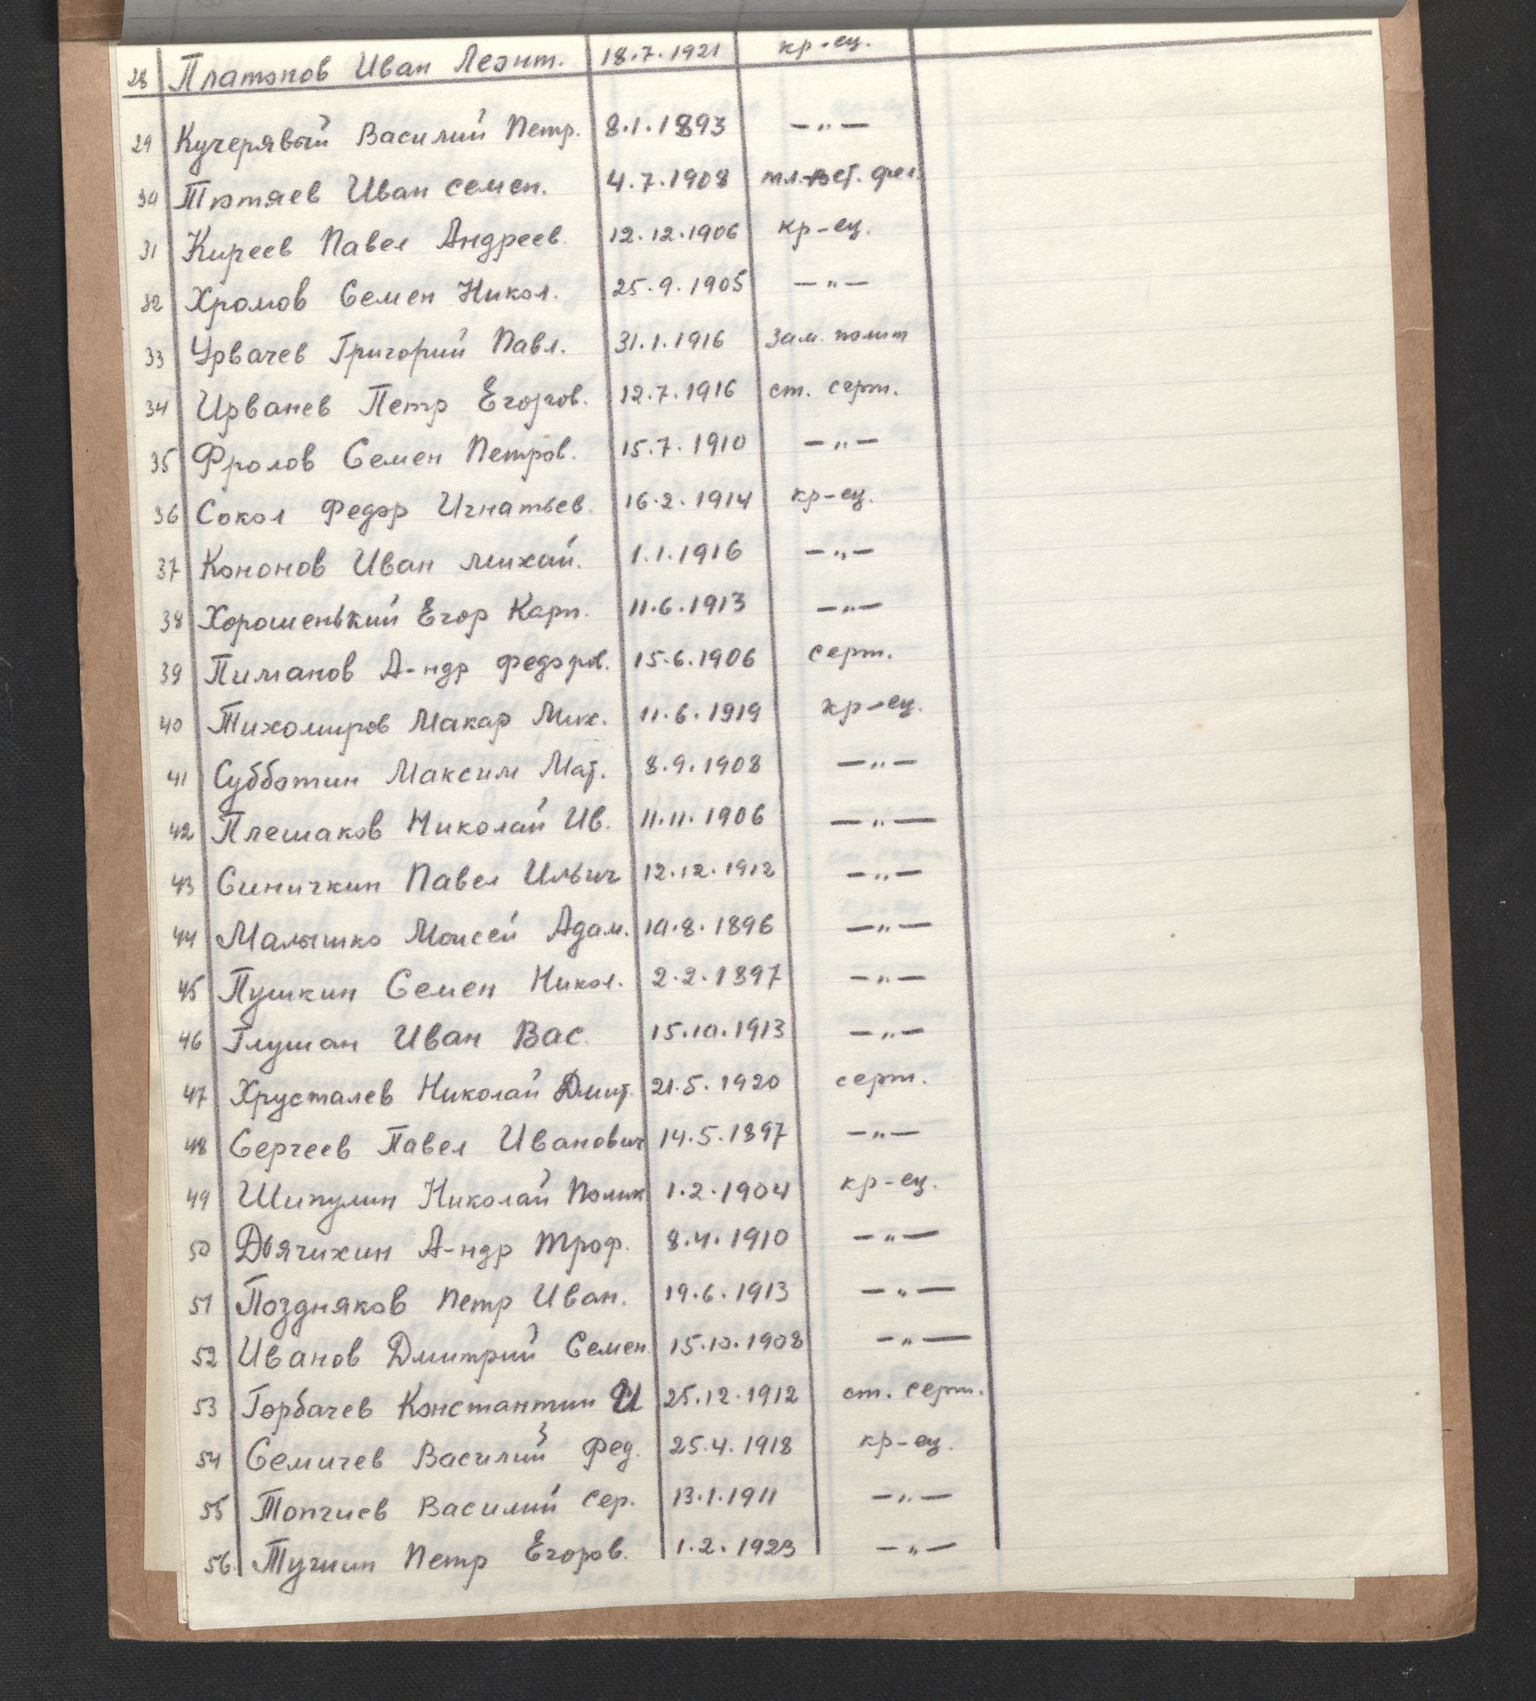 28 Платонов Иван Леонт. 18.7.1921 кр-ец.
29 Кучерявый Василий Петр. 8.1.1893 —„—
30 Тютяев Иван семен. 4.7.1908 мл. вет. фел.
31 Киреев Павел Андреев. 12.12.1906 кр-ец.
32 Хромов Семен Никол. 25.9.1905 —„—
33 Урвачев Григорий Павл. 31.1.1916 зам. полит
34 Ирванев Петр Егоров. 12.7.1916 ст. серж.
35 Фролов Семен Петров. 15.7.1910 —„—
36 Сокол Федор Игнатьев. 16.2.1914 кр-ец.
37 Кононов Иван михай. 1.1.1916 —„—
38 Хорошенький Егор Карп. 11.6.1913 —„—
39 Пиманов А-ндр федоров. 15.6.1906 серж.
40 Тихомиров Макар Мих. 11.6.1919 кр-ец.
41 Субботин Максим Мат. 8.9.1908 —„—
42 Плешаков Николай Ив. 11.11.1906 —„—
43 Синичкин Павел Ильич 12.12.1912 —„—
44 Малышко Моисей Адам. 10.8.1896 —„—
45 Пушкин Семен Никол. 2.2.1897 —„—
46 Глушан Иван Вас. 15.10.1913 —„—
47 Хрусталев Николай Дмит. 21.5.1920 серж.
48 Сергеев Павел Иванович 14.5.1897 —„—
49 Шипулин Николай Полик 1.2.1904 кр-ец.
50 Дьячихин А-ндр Троф. 8.4.1910 —„—
51 Поздняков Петр Иван. 19.6.1913 —„—
52 Иванов Дмитрий Семен. 15.10.1908 —„—
53 Горбачев Константин И 25.12.1912 ст. серж.
54 Семичев Василий Фед. 25.4.1918 кр-ец.
55 Топчиев Василий Сер. 13.1.1911 —„—
56 Петр Егоров. 1.2.1923 —„—